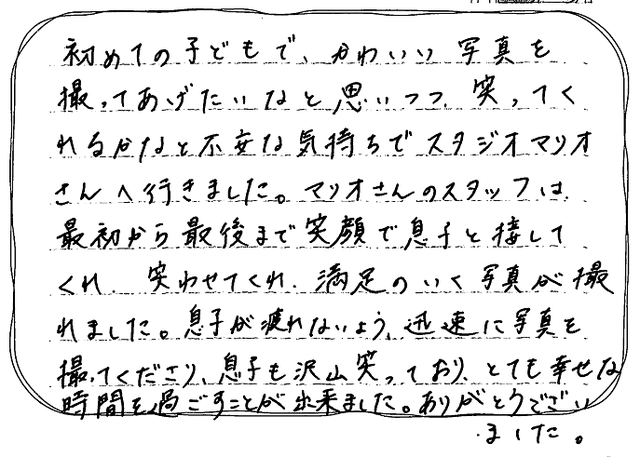 初めての子どもで、かわいい写真を
撮ってあげたいなと思いつつ、笑ってく
れるかなと不安な気持ちでスタジオマリオ
さんへ行きました。マリオさんのスタッフは
最初から最後まで笑顔で息子と接して
くれ、笑わせてくれ、満足のいく写真が撮
れました。息子が疲れないよう、迅速に写真を
撮ってくださり、息子も沢山笑っており、とても幸せな
時間を過ごすことが出来ました。ありがとうござい
ました。